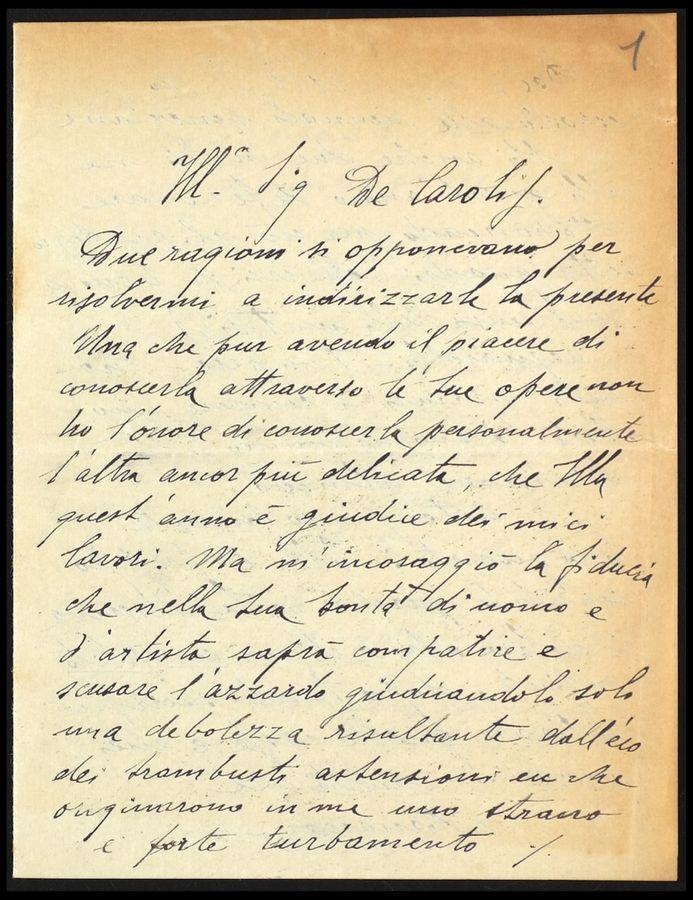 1
Ill.mo Sig De Carolis.
Due ragioni si opponevano per
risolvermi a indirizzarle la presente
Una che pur avendo il piacere di
conoscerla attraverso le sue opere non
ho l'onore di conoscerla personalmente
l'altra ancor più delicata, che Ella
quest'anno è giudice dei miei
lavori. Ma m'incoraggiò la fiducia
che nella sua bontà di uomo e
d'artista saprà compatire e
scusare l'azzardo giudicandolo solo
una debolezza risultante dall'eco
dei trambusti astensioni che
originarono in me uno strano
e forte turbamento ./.